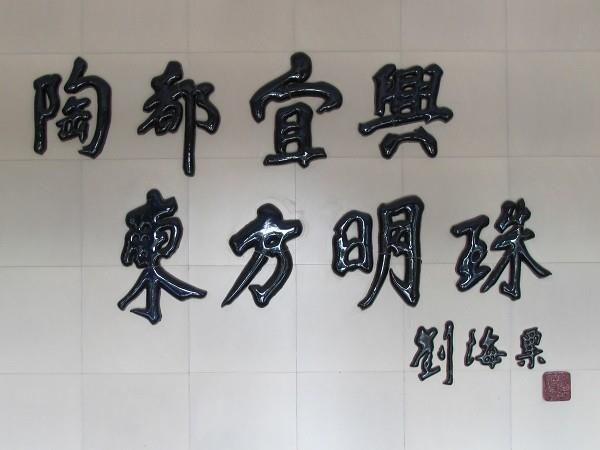 陶都宜興
東方明珠
劉海粟